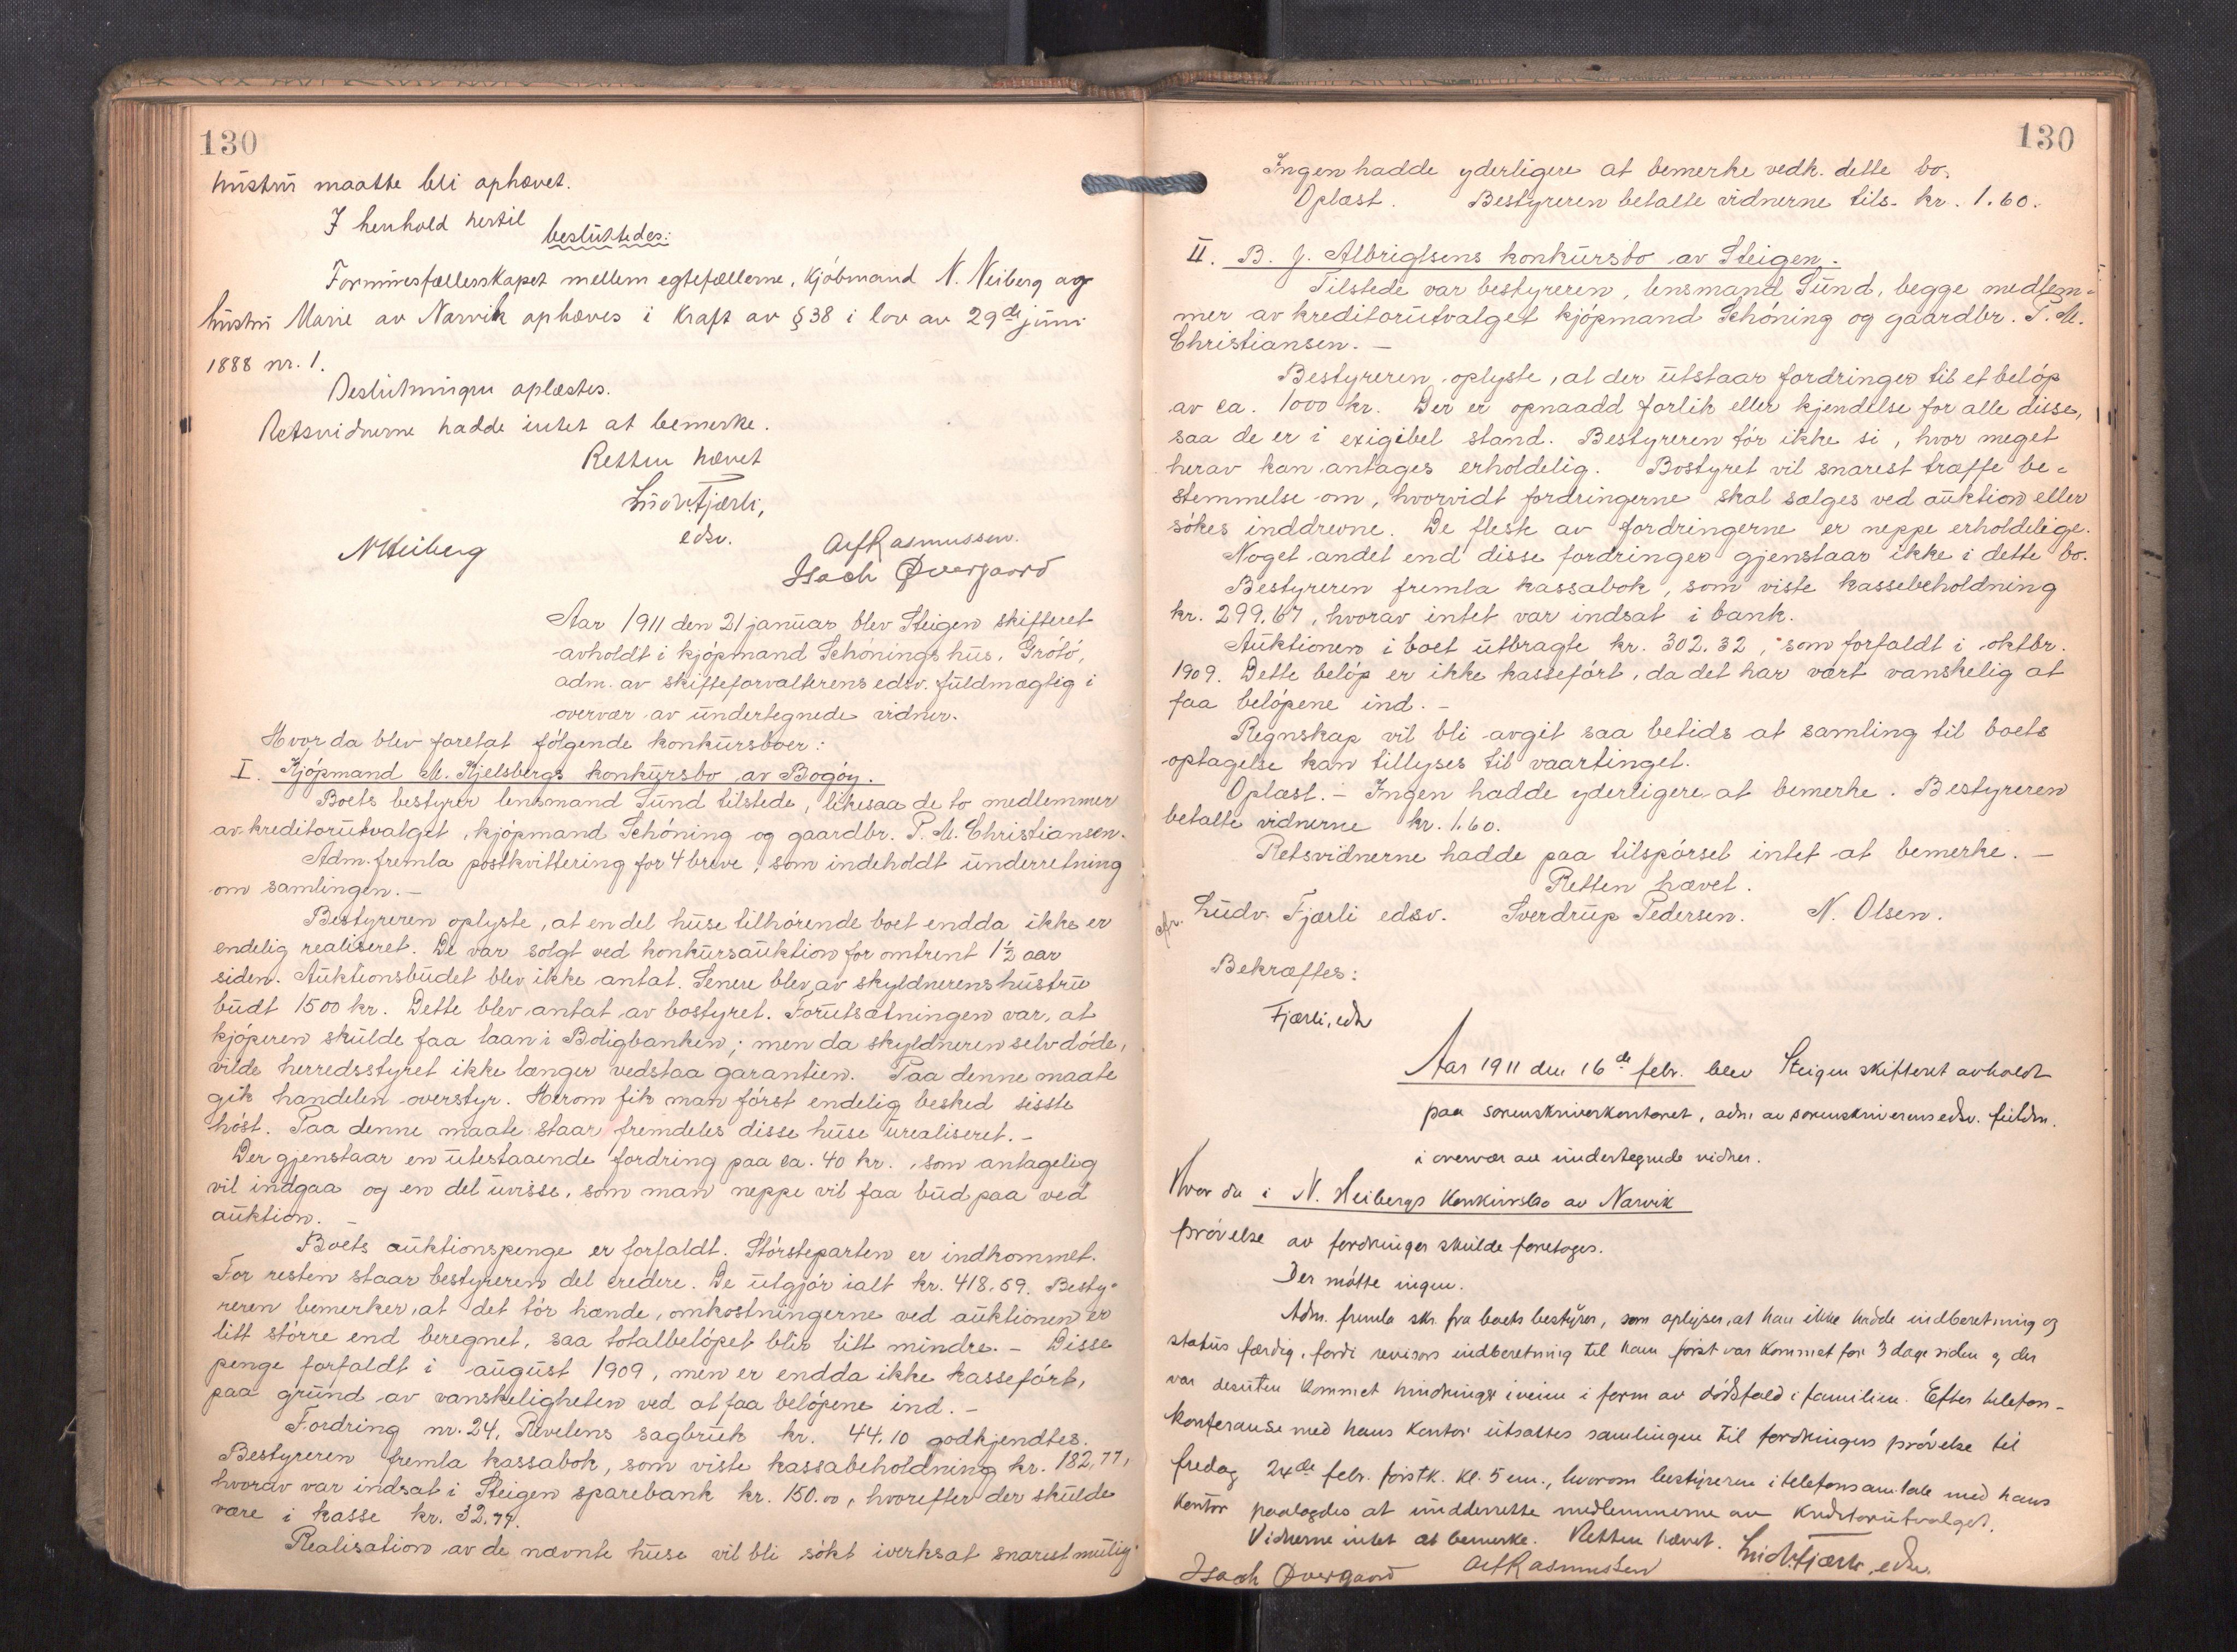 130
hustru maatte bli ophævet.
I henhold hertil
besluttedes:
Formuesfællesskapet mellem egtefællerne, kjöbmand N. Heiberg og
hustru Marie av Narvik ophæves i kraft av § 38 i lov av 29de juni
1888 nr. 1.
Beslutningen oplæstes.
Retsvidnerne hadde intet at bemerke.
Retten hævet
Ludv. Fjærli,
edsv.
N Heiberg
Alf Rasmussen.
Isach Øvergaard
Aar 1911 den 21 januar blev Steigen skifteret
avholdt i kjöpmand Schönings hus, Grötö,
adm. av skifteforvalterens edsv. fuldmægtig i
overvær av undertegnede vidner.
Hvor da blev foretat fölgende konkursboer:
I. Kjöpmand M. Kjelsbergs konkursbo av Bogöy.
Boets bestyrer lensmand Sund tilstede, likesaa de to medlemmer
av kreditorutvalget, kjöpmand Schöning og gaardbr. P. M. Christiansen.
Adm. fremla postkvittering for 4 breve, som indeholdt underretning
om samlingen. –
Bestyreren oplyste, at en del huse tilhörende boet endda ikke er
endelig realiseret. De var solgt ved konkursauktion for omtrent 1½ aar
siden. Auktionsbudet blev ikke antat. Senere blev av skyldnerens hustru
budt 1500 kr. Dette blev antat av bostyret. Forutsætningen var, at
kjöperen skulde faa laan i Boligbanken; men da skyldneren selv döde,
vilde herredsstyret ikke længer vedstaa garantien. Paa denne maate
gik handelen overstyr. Herom fik man först endelig besked sisste
höst. Paa denne maate staar fremdeles disse huse urealiseret. –
Der gjenstaar en utestaaende fordring paa ca. 40 kr., som antagelig
vil indgaa og en del uvisse, som man neppe vil faa bud paa ved
auktion. –
Boets auktionspenge er forfaldt. Störsteparten er indkommet.
For resten staar bestyreren del credere. De utgjör ialt kr. 418.59. Besty-
reren bemerker, at det tör hænde, omkostningerne ved auktionen er
litt större end beregnet, saa totalbelöpet blir litt mindre. – Disse
penge forfaldt i august 1909, men er endda ikke kasseført,
paa grund av vanskeligheten ved at faa belöpene ind. –
Fordring nr. 24, Revelens sagbruk kr. 44.10 godkjendtes.
Bestyreren fremla kassabok, som viste kassabeholdning kr. 182,77,
hvorav var indsat i Steigen sparebank kr. 150.00, hvorefter der skulde
være i kasse kr. 32.77.
Realisation av de nævnte huse vil bli sökt iverksat snarest mulig.
130
Ingen hadde yderligere at bemerke vedk. dette bo.
Oplæst. Bestyreren betalte vidnerne tils. kr. 1.60.
II. B. J. Albrigtsens konkursbo av Steigen.
Tilstede var bestyreren, lensmand Sund, begge medlem-
mer av kreditorutvalget kjöpmand Schöning og gaardbr. P. M.
Christiansen. –
Bestyreren oplyste, at der utstaar fordringer til et belöp
av ca. 1000 kr. Der er opnaadd forlik eller kjendelse for alle disse,
saa de er i exigibel stand. Bestyreren tör ikke si, hvor meget
herav kan antages erholdelig. Bostyret vil snarest træffe be-
stemmelse om, hvorvidt fordringerne skal sælges ved auktion eller
sökes inddrevne. De fleste av fordringerne er neppe erholdelige.
Noget andet end disse fordringer gjenstaar ikke i dette bo.
Bestyreren fremla kassabok, som viste kassebeholdning
kr. 299.67, hvorav intet var indsat i bank.
Auktionen i boet utbragte kr. 302.32, som forfaldt i oktbr.
1909. Dette belöp er ikke kasseført, da det har vært vanskelig at
faa belöpene ind. –
Regnskap vil bli avgit saa betids at samling til boets
optagelse kan tillyses til vaartinget.
Oplæst. – Ingen hadde yderligere at bemerke. Bestyreren
betalte vidnerne kr. 1.60.
Retsvidnerne hadde paa tilspörsel intet at bemerke. –
Retten hævet.
Ludv. Fjærli edsv. Sverdrup Pedersen. N. Olsen.
Bekræftes:
Fjærli, edsv
Aar 1911 den 16de febr. blev Steigen skifteret avholdt
paa sorenskriverkontoret, adm. av sorenskriverens edsv. fuldm.
i overvær av undertegnede vidner.
Hvor da i N. Heibergs konkursbo av Narvik
prövelse av fordringer skulde foretages.
Der mötte ingen.
Adm. fremla skr. fra boets bestyrer, som oplyser, at han ikke hadde indberetning og
status færdig, fordi revisors indberetning til ham först var kommet for 3 dage siden og der
var desuten kommet hindringer iveien i form av dödsfald i familien. Efter telefon-
konferanse med hans kontor utsattes samlingen til fordringers prövelse til
fredag 24de febr. förstk. kl. 5 em., hvorom bestyreren i telefonsamtale med hans
kontor paalagdes at underrette medlemmerne av kreditorutvalget.
Vidnerne intet at bemerke. Retten hævet. Ludv. Fjærli, edsv.
Isach Øvergaard Alf Rasmussen